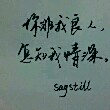 你非我良人,
怎知我情深。
sagstill